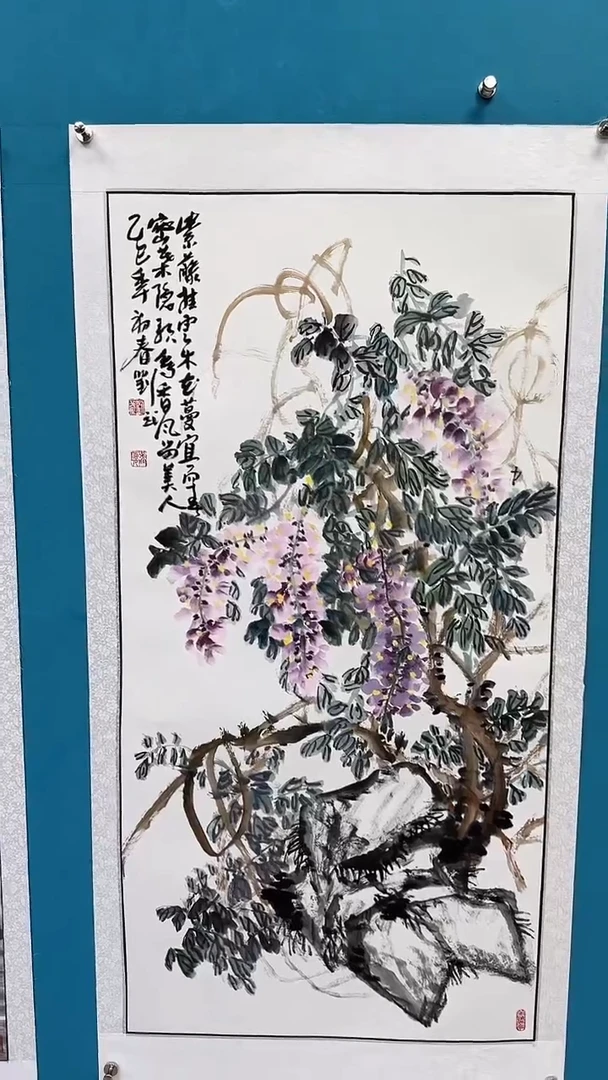 紫藤挂雲木花蔓宜陽春
密葉隐歌鳥香风留美人
乙巳年初春劉